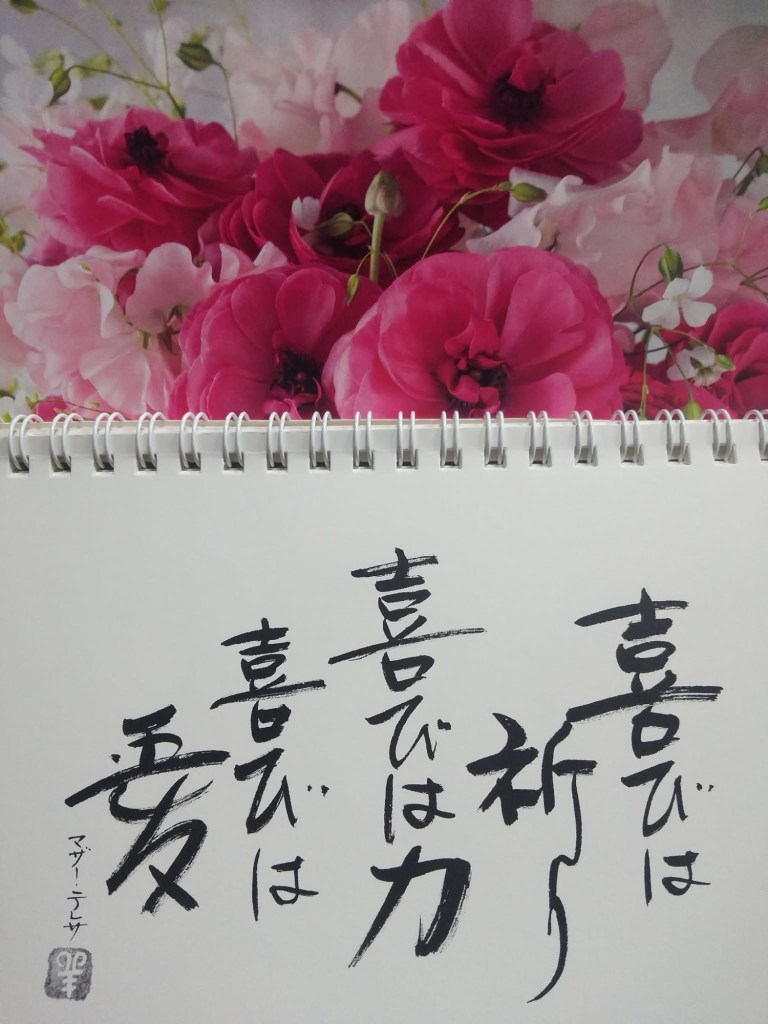 喜びは
祈り
喜びは力
喜びは
愛
マザー・テレサ